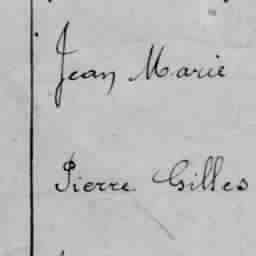 Jean Marie
Pierre Gilles